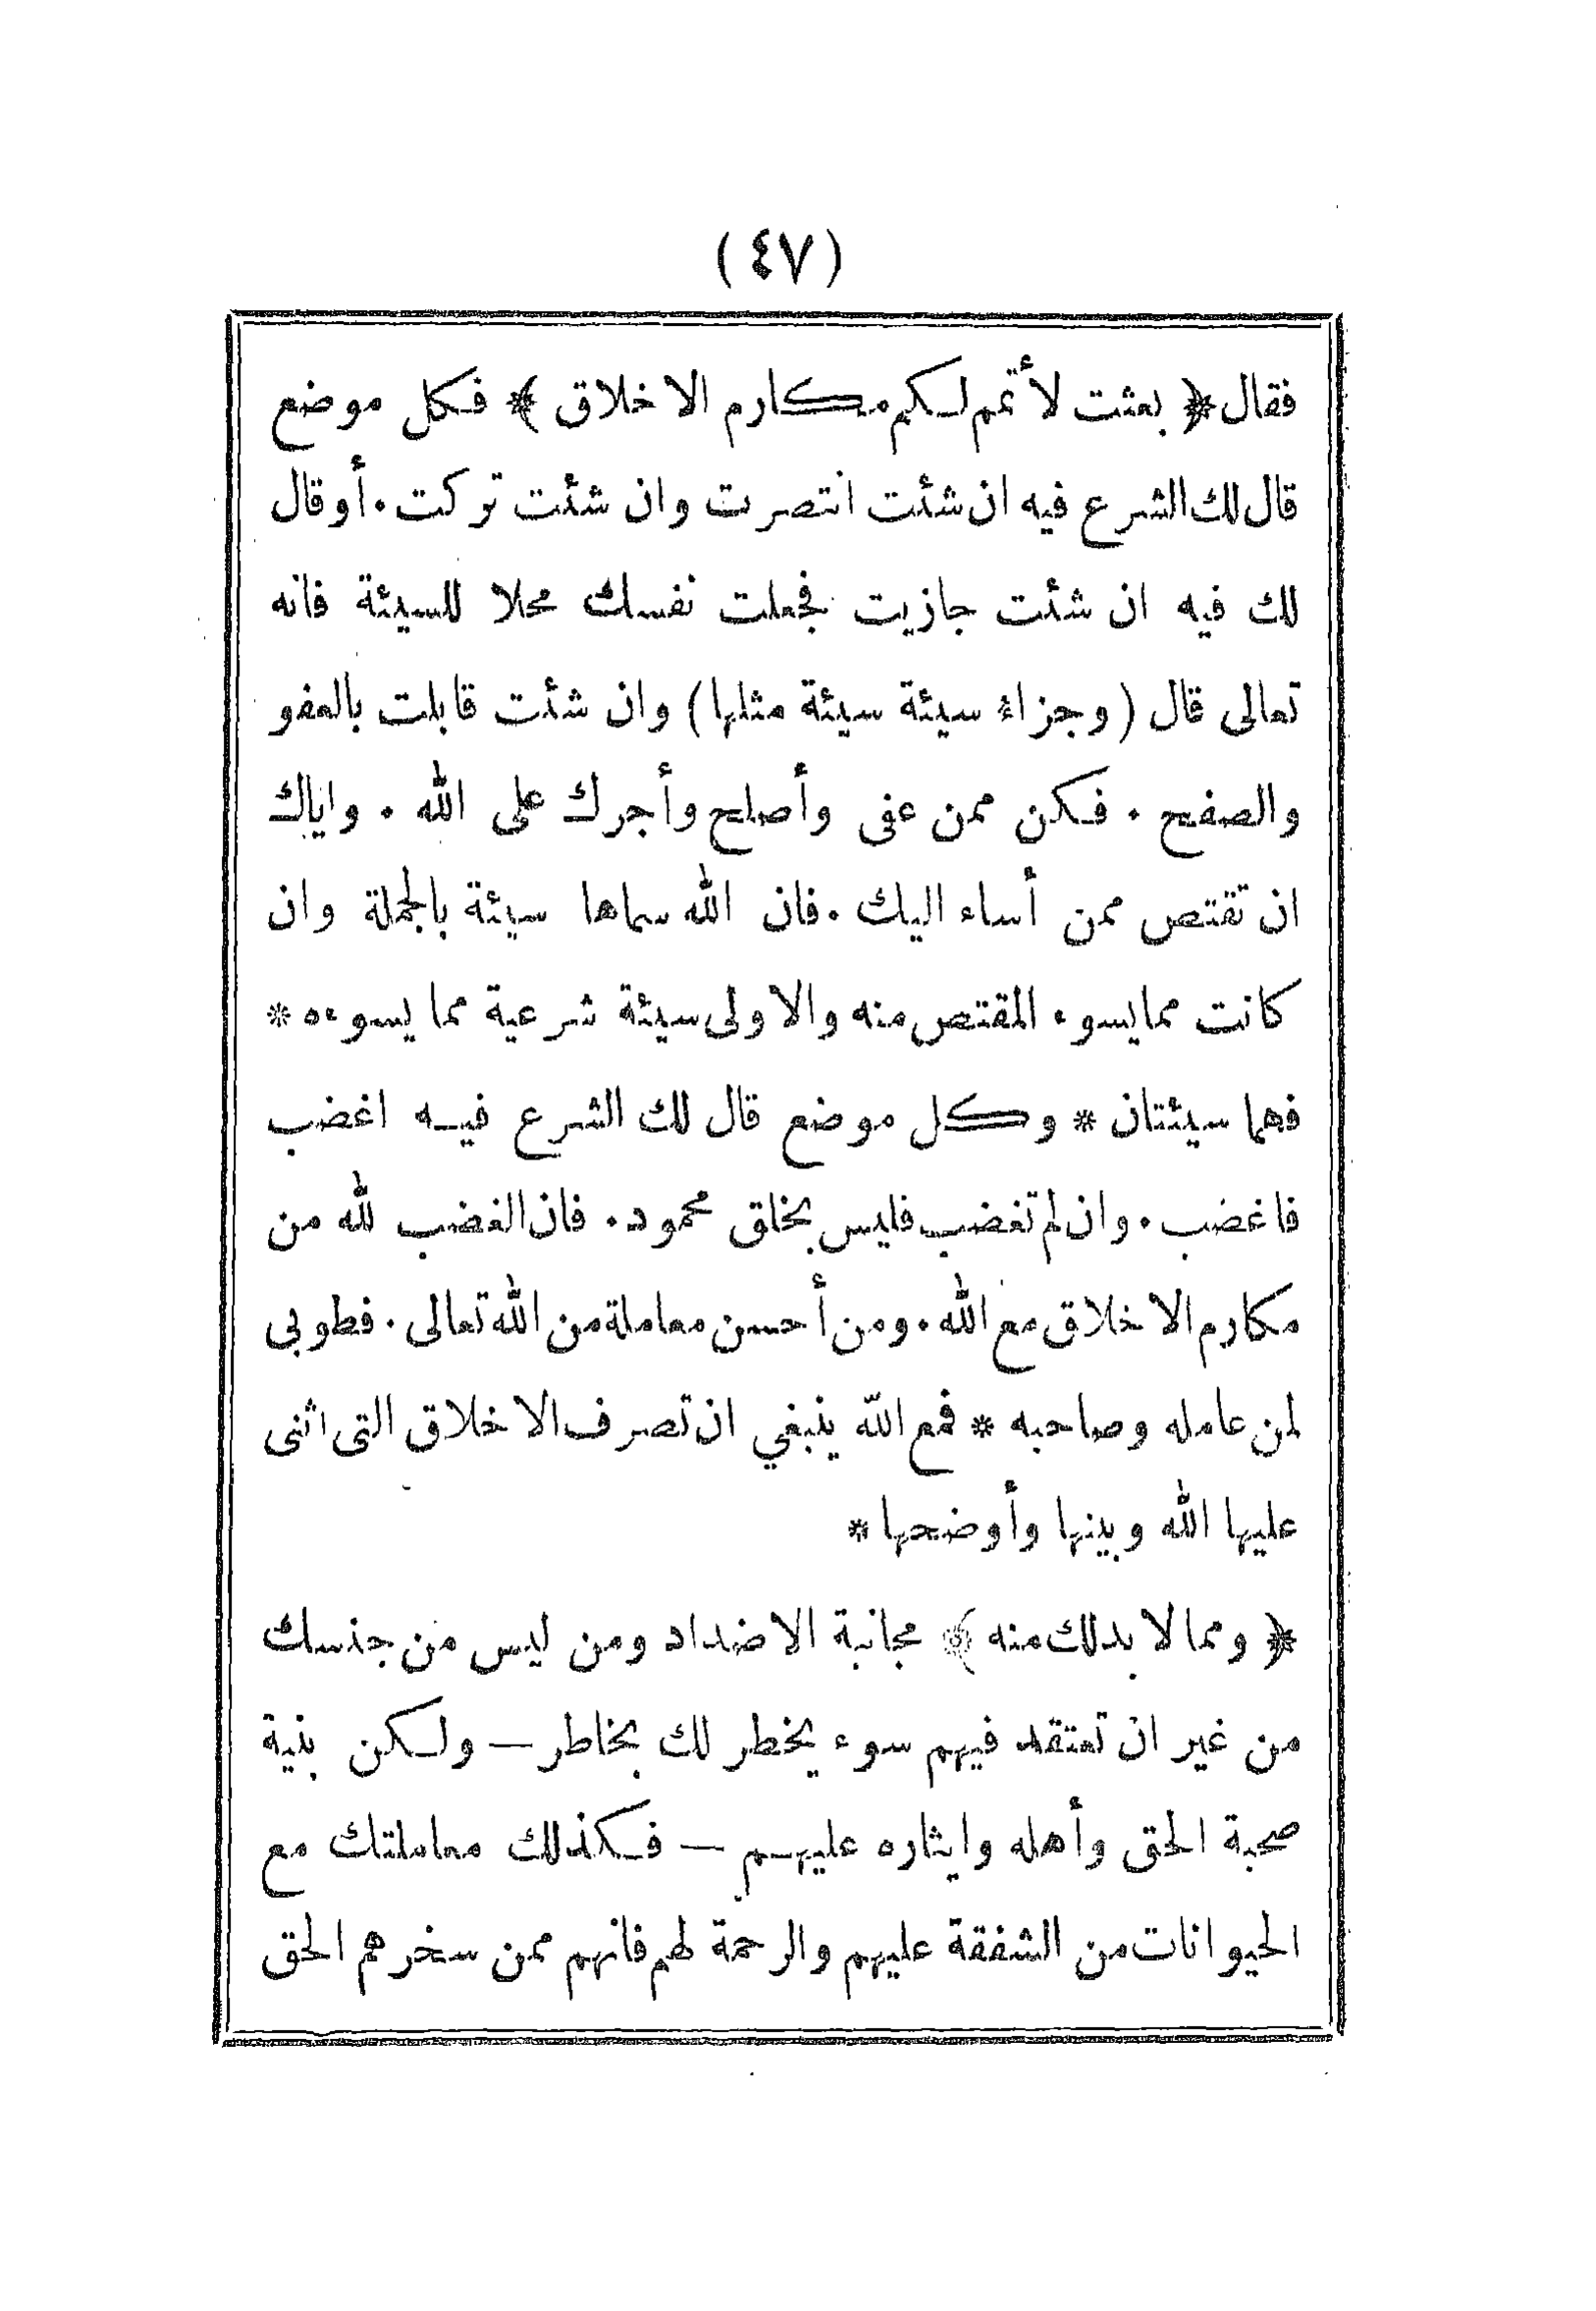 (٤٧)
فقال ﴿ بعثت لأتمم لكم مكارم الاخلاق ﴾ فكل موضع
قال لك الشرع فيه ان شئت انتصرت وان شئت تركت. أو قال
لك فيه ان شئت جازيت فجعلت نفسك محلا للسيئة فانه
تعالى قال (وجزاء سيئة سيئة مثلها) وان شئت قابلت بالعفو
والصفح . فكن ممن عفى وأصلح وأجرك على الله . واياك
ان تقتص ممن أساء اليك . فان الله سماها سيئة بالجملة وان
كانت مما يسوء المقتص منه والاولى سيئة شرعية مما يسوءه *
فهما سيئتان * وكل موضع قال لك الشرع فيه اغضب
فاغضب . وان لم تغضب فليس بخلق محمود . فان الغضب لله من
مكارم الاخلاق مع الله . ومن أحسن معاملة من الله تعالى . فطوبى
لمن عامله وصاحبه * فمع الله ينبغي ان تصرف الاخلاق التى اثنى
عليها الله وبينها وأوضحها *
﴿ ومما لا بد لك منه ﴾ مجانبة الاضداد ومن ليس من جنسك
من غير ان تعتقد فيهم سوء يخطر لك بخاطر — ولكن بنية
صحبة الحق وأهله وايثاره عليهم — فكذلك معاملتك مع
الحيوانات من الشفقة عليهم والرحمة لهم فانهم ممن سخرهم الحق